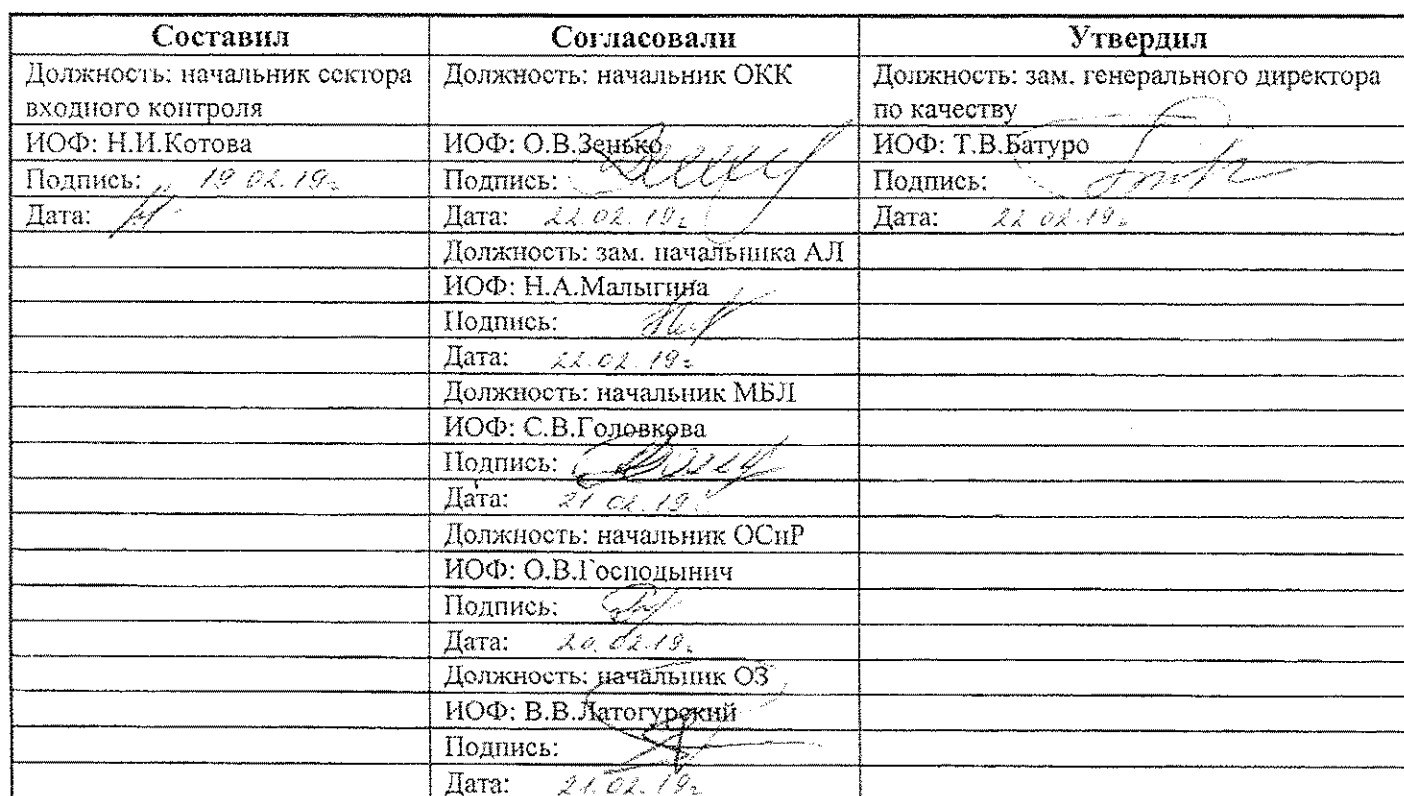 Составил Согласовали Утвердил
Должность: начальник сектора Должность: начальник ОКК Должность: зам. генерального директора
входного контроля по качеству
ИОФ: Н.И.Котова ИОФ: О.В.Зенько ИОФ: Т.В.Батуро
Подпись: 19.02.19г Подпись: Подпись:
Дата: Дата: 22.02.19г Дата: 22.02.19г
Должность: зам. начальника АЛ
ИОФ: Н.А.Малыгина
Подпись:
Дата: 22.02.19г
Должность: начальник МБЛ
ИОФ: С.В.Головкова
Подпись:
Дата: 21.02.19г
Должность: начальник ОСиР
ИОФ: О.В.Господынич
Подпись:
Дата: 20.02.19г
Должность: начальник ОЗ
ИОФ: В.В.Латогурский
Подпись:
Дата: 21.02.19г